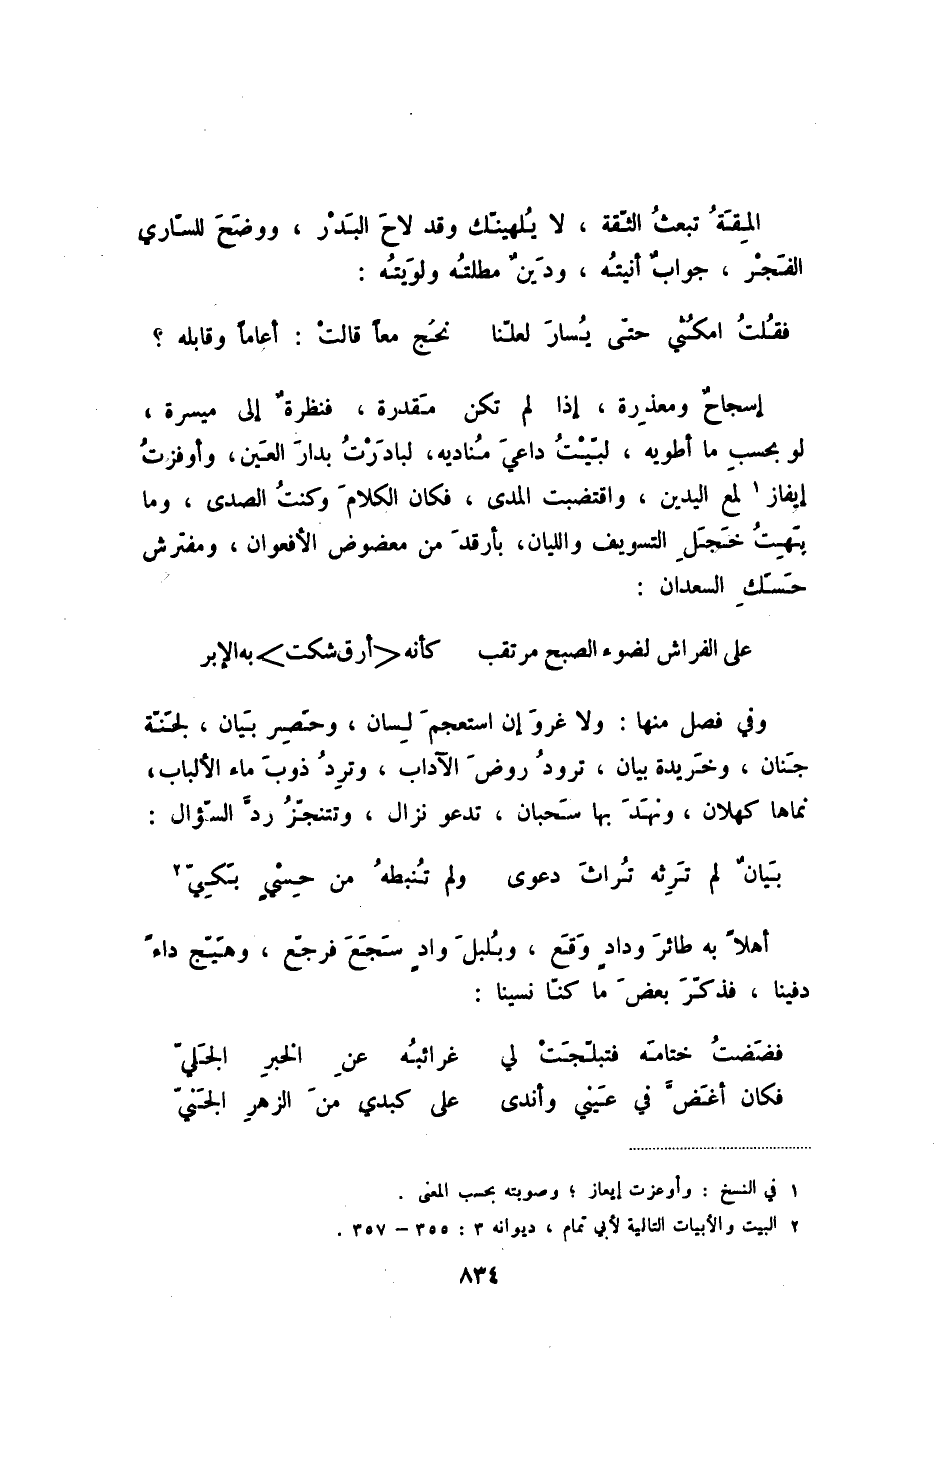 المِقَةُ تبعثُ الثّقة ، لا يُلهينّك وقد لاحَ البَدْر ، ووضَحَ للسّاري
الفَجْر ، جوابٌ أنيتُه ، ودَينٌ مطلتُه ولوَيتُه :
فقُلتُ امكُثي حتّى يُسارَ لعلّنا نحُج معاً قالتْ : أعاماً وقابله ؟
إسجاحٌ ومعذِرة ، إذا لم تكن مَقدرة ، فنظرةٌ إلى ميسرة ،
لو بحسبِ ما أطويه ، لبّيْتُ داعيَ مُناديه، لبادَرْتُ بدارَ العَين، وأوفزتُ
إيفاز١ لمع اليدين ، واقتضبت المدى ، فكان الكلامَ وكنتُ الصدى ، وما
يَهِتُ خَجَلِ التسويف والليان، بأرقدَ من معضوض الأفعوان ، ومفترش
حَسَكِ السعدان :
على الفراش لضوء الصبح مرتقب كأنه <أرق شكت> به الإبر
وفي فصل منها : ولا غروَ إن استعجمَ لِسان ، وحَصِر بَيان ، لجَنّة
جَنان ، وخَريدة بيان ، ترودُ روضَ الآداب ، وتَرِدُ ذوبَ ماء الألباب،
نماها كهلان ، ونهَدَ بها سَحبان ، تدعو نزال ، وتتنجّزُ ردَّ السّؤال :
بَيانٌ لم تَرِثه تُراثَ دعوى ولم تُنبطهُ من حِسْيٍ بَكِيّ٢
أهلاً به طائرَ ودادٍ وَقَع ، وبُلبلَ وادٍ سَجَعَ فرجّع ، وهَيّج داءً
دفينا ، فذكّرَ بعضَ ما كنّا نسينا :
فضَضتُ ختامَه فتبلّجَتْ لي غرائبُه عنِ الخبرِ الجَليّ
فكان أغَضَّ في عَيْني وأندى على كبدي منَ الزهرِ الجَنْيّ
١ في النسخ : وأوعزت إيعاز ؛ وصوبته بحسب المعنى .
٢ البيت والأبيات التالية لأبي تمام ، ديوانه ٣ : ٣٥٥ – ٣٥٧ .
٨٣٤